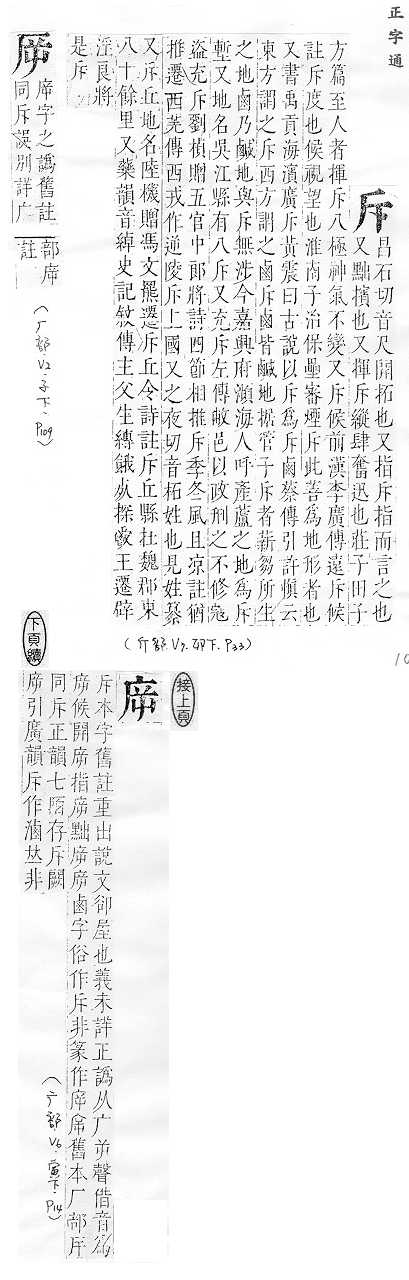 正字通
斥
昌石切音尺開拓也又指斥指而言之也
又黜擯也又揮斥縱肆奮迅也莊子田子
方篇至人者揮斥八極神氣不變又斥候前漢李廣傳遠斥候
註斥度也候視望也淮南子治保壘審煙斥此善為地形者也
又書禹貢海濱廣斥黃震曰古說以斥為斥鹵蔡傳引許慎云
東方謂之斥西方謂之鹵斥鹵皆鹹地據管子斥者薪芻所生
之地鹵乃鹹地與斥無涉今嘉興府瀕海人呼產蘆之地為斥
塹又地名吳江縣有八斥又充斥左傳敝邑以政刑之不修寇
盜充斥劉楨贈五官中郎將詩四節相推斥季冬風且涼註猶
推遷西羌傳西戎作逆陵斥上國又之夜切音柘姓也見姓纂
又斥丘地名陸機贈馮文羆遷斥丘令詩註斥丘縣杜魏郡東
八十餘里又藥韻音綽史記敘傳主父生縳餓
探爵王遷辟
淫良將
是斥
㡿字之譌舊註
同斥誤別詳广
部㡿
註
(厂部.V2.子下.P109)
(斤部 V7.卯下.P33)
下頁續
接上頁
㡿
斥本字舊註重出說文卻屋也義未詳正譌从广屰聲借音為
㡿候開㡿指㡿黜㡿㡿鹵字俗作斥非篆作
舊本厂部
同斥正韻七陌存斥闕
㡿引廣韻斥作滷𠀤非
(广部.V6.寅下.P14)